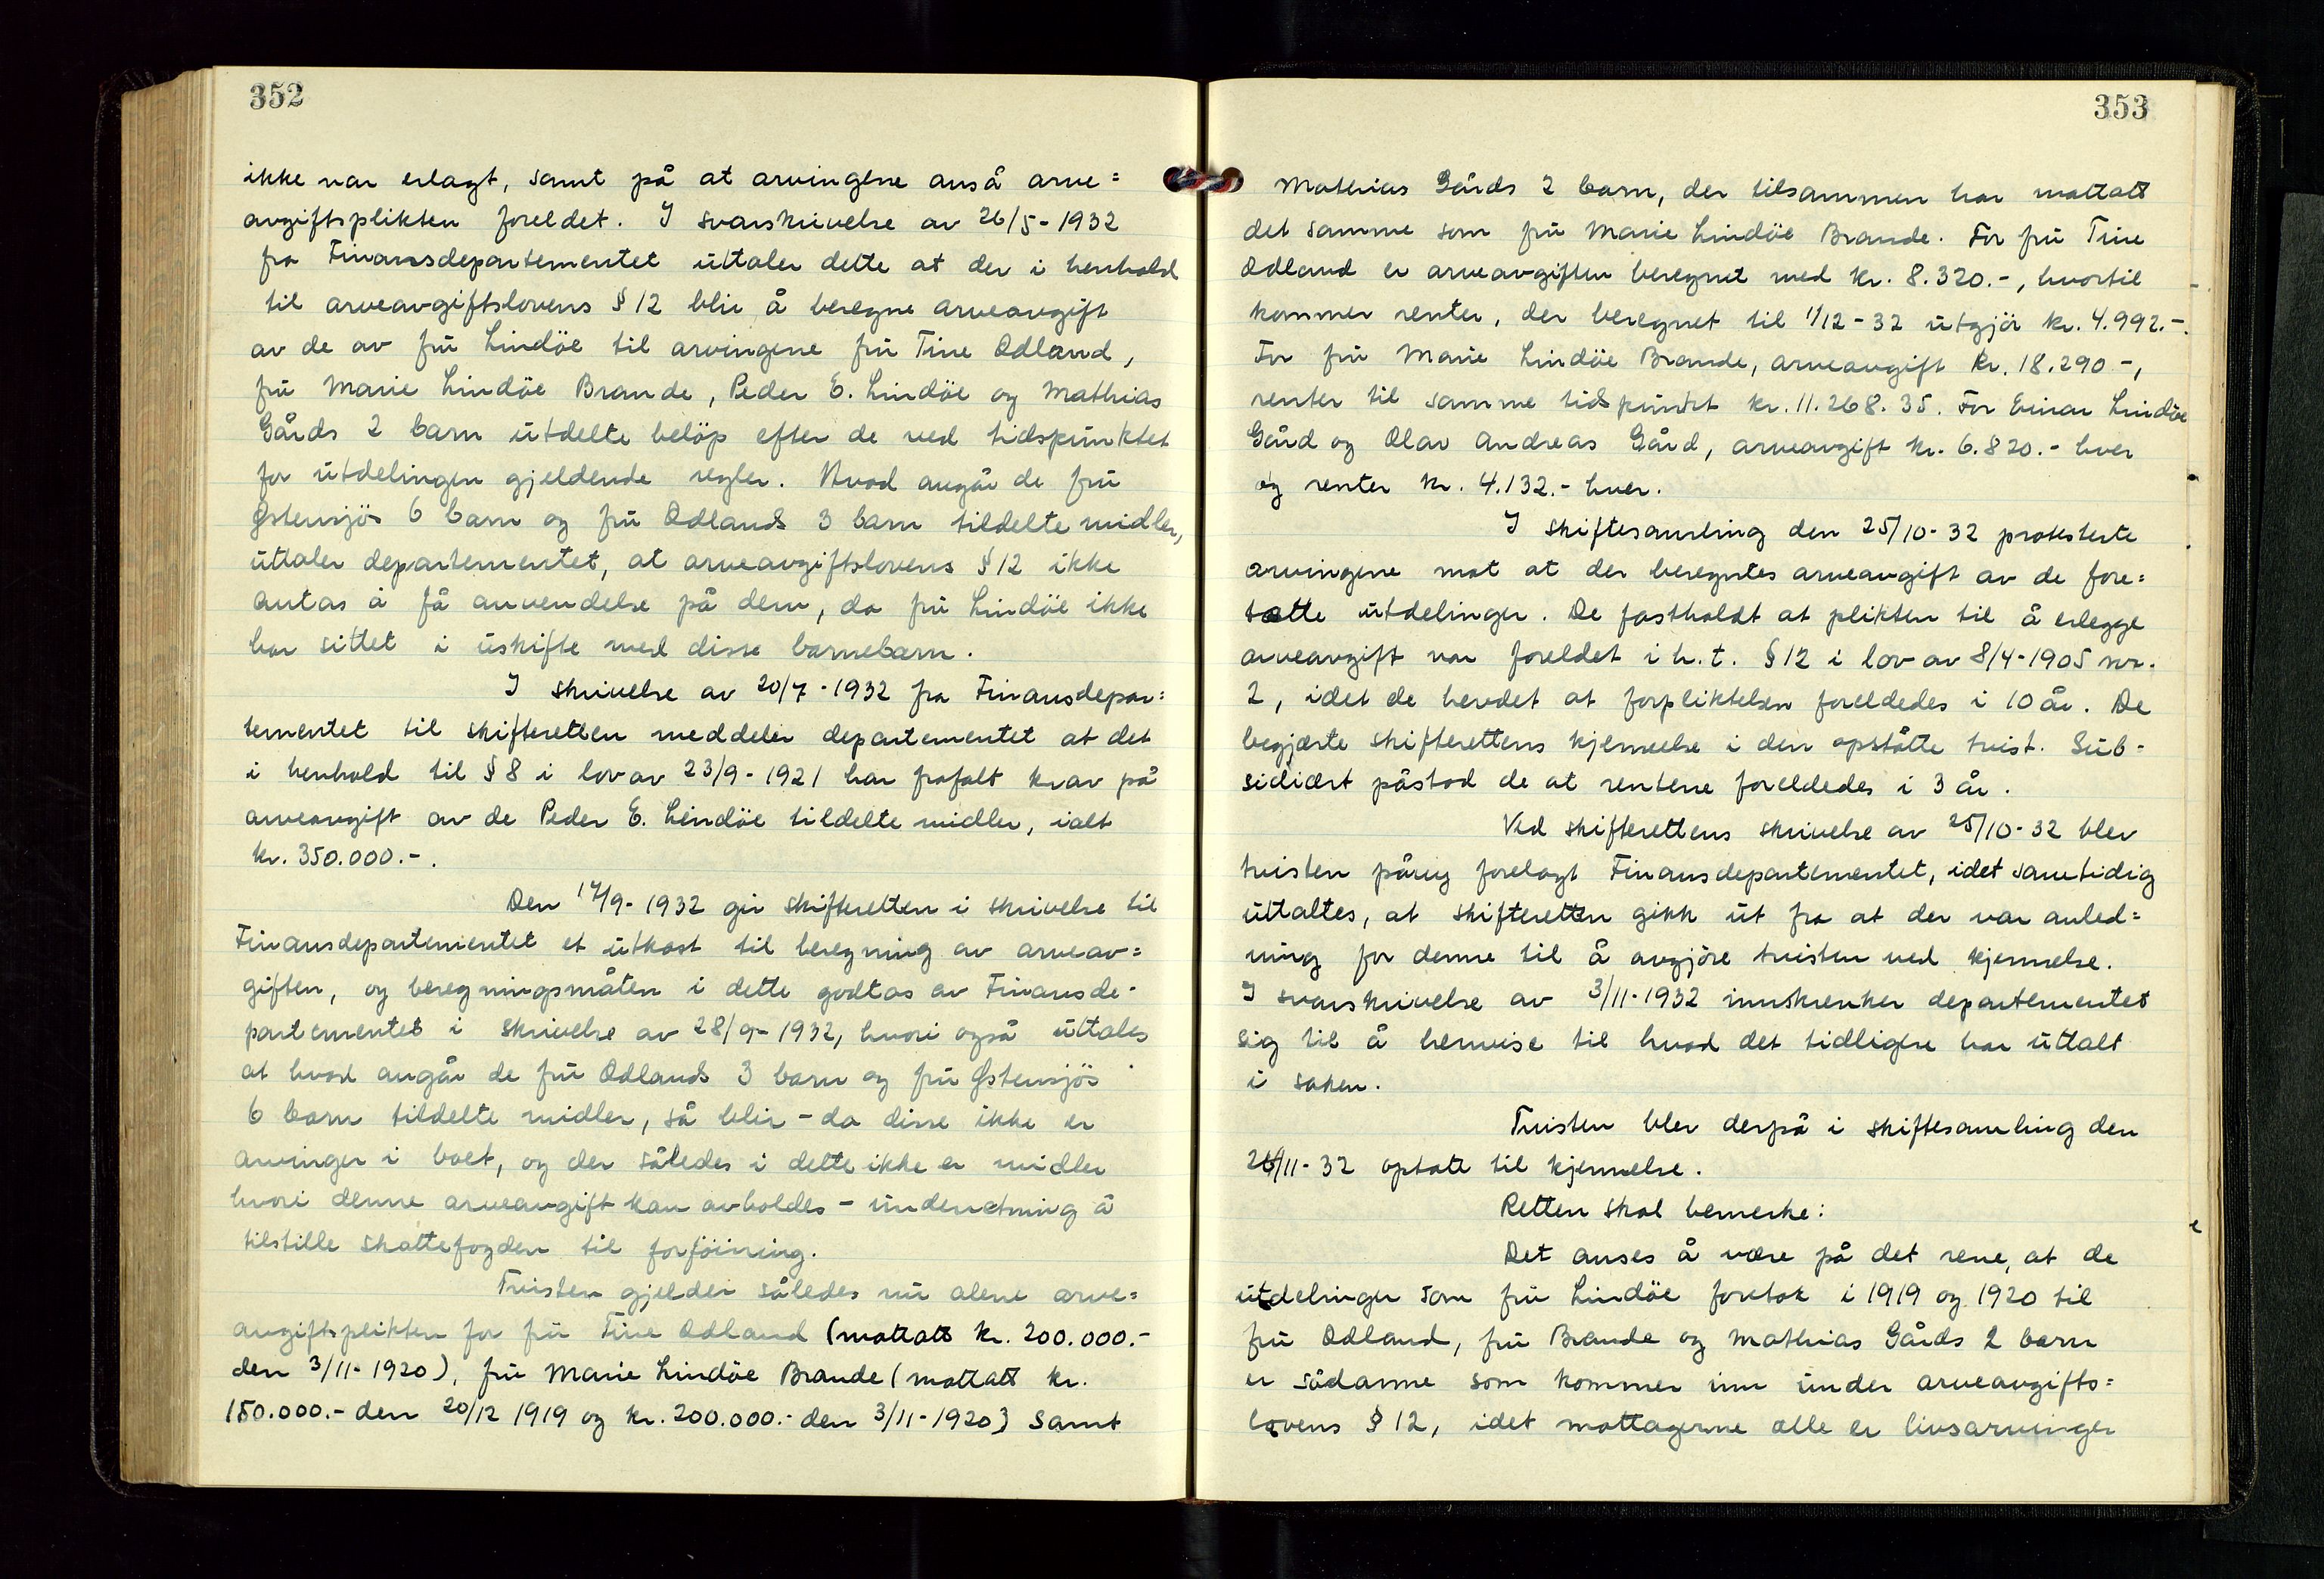 352
ikke var erlagt, samt på at arvingene anså arve=
avgiftsplikten foreldet. I svarskrivelse av 26/5-1932
fra Finansdepartementet uttaler dette at der i henhold
til arveavgiftslovens § 12 blir å beregne arveavgift
av de av fru Lindöe til arvingene fru Tine Odland,
fru Marie Lindöe Brande, Peder E. Lindöe og Mathias
Gårds 2 barn utdelte belöp efter de ved tidspunktet
for utdelingen gjeldende regler. Hvad angår de fru
Østensjös 6 barn og fru Odlands 3 barn tildelte midler,
uttaler departementet, at arveavgiftslovens § 12 ikke
antas å få anvendelse på dem, da fru Lindöe ikke
har sittet i uskifte med disse barnebarn.
I skrivelse av 20/7-1932 fra Finansdepar=
tementet til skifteretten meddeler departementet at det
i henhold til § 8 i lov av 23/9-1921 har frafalt krav på
arveavgift av de Peder E. Lindöe tildelte midler, ialt
kr. 350.000.-.
Den 17/9-1932 gir skifteretten i skrivelse til
Finansdepartementet et utkast til beregning av arveav=
giften, og beregningsmåten i dette godtas av Finansde-
partementet i skrivelse av 28/9-1932, hvori også uttales
at hvad angår de fru Odlands 3 barn og fru Østensjös
6 barn tildelte midler, så blir - da disse ikke er
arvinger i boet, og der således i dette ikke er midler
hvori denne arveavgift kan avholdes - underretning å
tilstille skattefogden til forföining.
Tvisten gjelder således nu alene arve=
avgiftsplikten for fru Tine Odland (mottatt kr. 200.000.-
den 3/11-1920), fru Marie Lindöe Brande (mottatt kr.
150.000.- den 20/12 1919 og kr. 200.000.- den 3/11-1920) samt
353
Mathias Gårds 2 barn, der tilsammen har mottatt
det samme som fru Marie Lindöe Brande. For fru Tine
Odland er arveavgiften beregnet med kr. 8.320.-, hvortil
kommer renter, der beregnet til 1/12-32 utgjör kr. 4.992.-.
For fru Marie Lindöe Brande, arveavgift kr. 18.290.-,
renter til samme tidspunkt kr. 11.268.35. For Einar Lindöe
Gård og Olav Andreas Gård, arveavgift kr. 6.820.- hver
og renter kr. 4.132.- hver.
I skiftesamling den 25/10-32 protesterte
arvingene mot at der beregntes arveavgift av de fore=
tatte utdelinger. De fastholdt at plikten til å erlegge
arveavgift var foreldet i h. t. § 12 i lov av 8/4-1905 nr.
2, idet de hevdet at forpliktelsen foreldedes i 10 år. De
begjærte skifterettens kjennelse i den opståtte tvist. Sub-
sidiært påstod de at rentene foreldedes i 3 år.
Ved skifterettens skrivelse av 25/10-32 blev
tvisten påny forelagt Finansdepartementet, idet samtidig
uttaltes, at skifteretten gikk ut fra at der var anled=
ning for denne til å avgjöre tvisten ved kjennelse.
I svarskrivelse av 3/11-1932 innskrenker departementet
sig til å henvise til hvad det tidligere har uttalt
i saken.
Tvisten blev derpå i skiftesamling den
/11-32 optatt til kjennelse.
Retten skal bemerke:
Det anses å være på det rene, at de
utdelinger som fru Lindöe foretok i 1919 og 1920 til
fru Odland, fru Brande og Mathias Gårds 2 barn
er sådanne som kommer inn under arveavgifts=
lovens § 12, idet mottagerne alle er livsarvinger